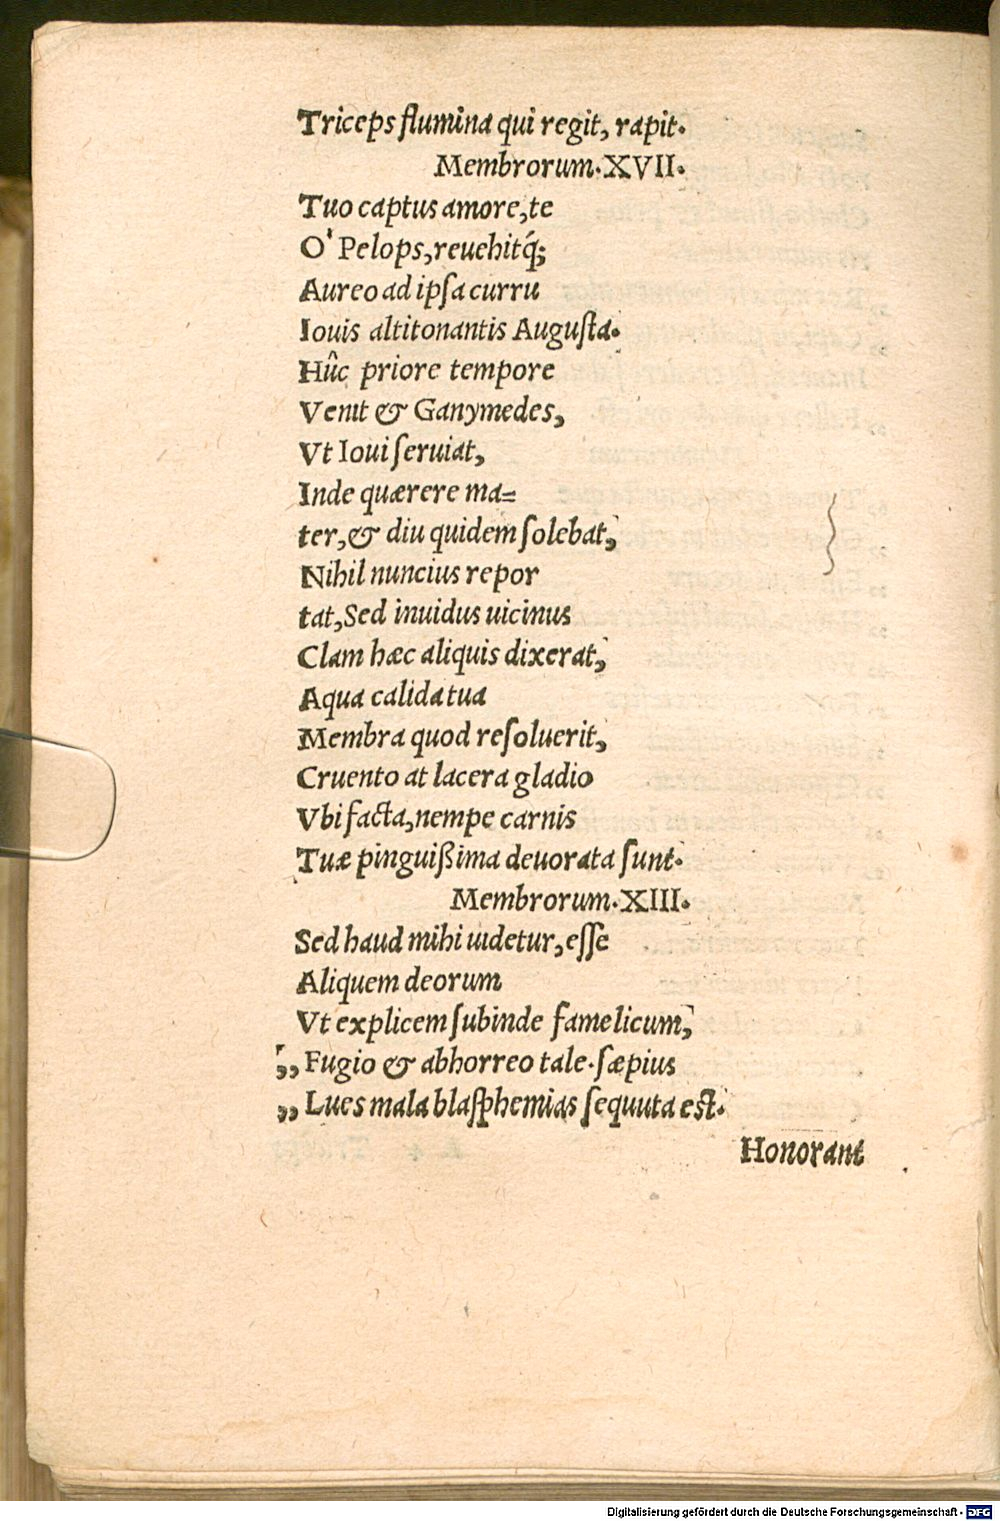 Triceps flumina qui regit, rapit.
Membrorum.XVII.
Tuo captus amore, te
O' Pelops, reuehitq́;
Aureo ad ipſa curru
Iouis altitonantis Auguſta.
Hûc priore tempore
Venit & Ganymedes,
Vt Ioui ſeruiat,
Inde quærere ma=
ter, & diu quidem ſolebat,
Nihil nuncius repor
tat, Sed inuidus uicinus
Clam hæc aliquis dixerat,
Aqua calida tua
Membra quod reſoluerit,
Cruento at lacera gladio
Vbi facta, nempe carnis
Tuæ pinguißima deuorata ſunt.
Membrorum.XIII.
Sed haud mihi uidetur, eſſe
Aliquem deorum
Vt explicem ſubinde famelicum,
,, Fugio & abhorreo tale. ſæpius
,, Lues mala blaſphemias ſequuta eſt.
Honorant
Digitalisierung gefördert durch die Deutsche Forschungsgemeinschaft - DFG